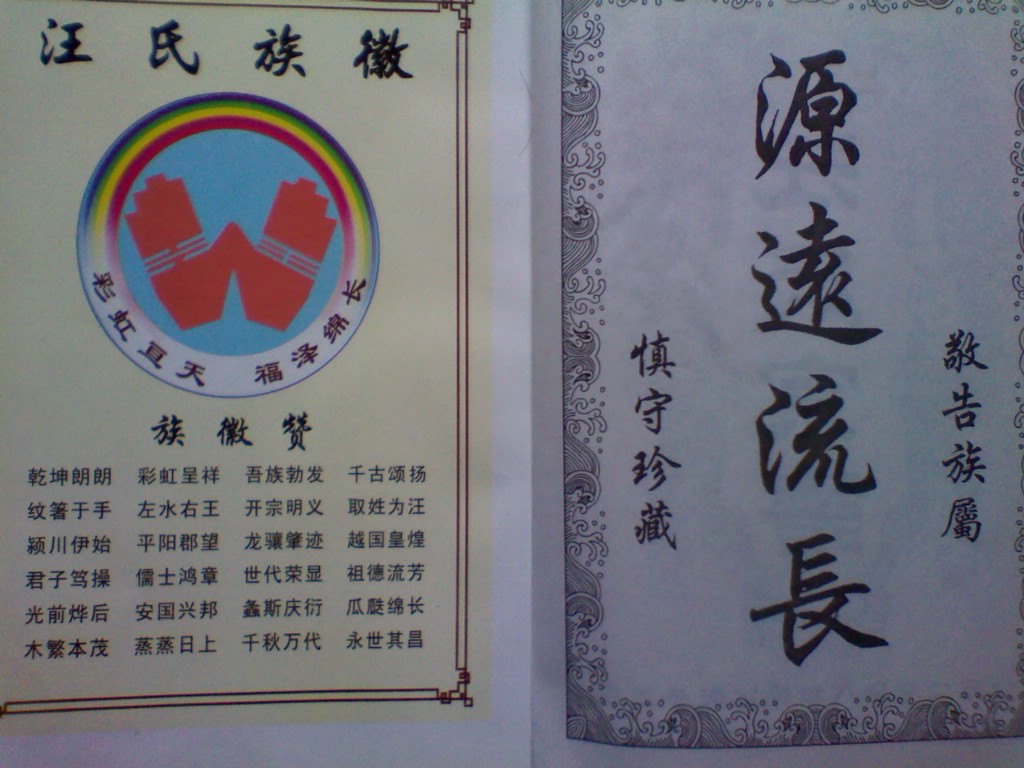 汪氏族徽
彩虹亘天 福泽绵长
族徽赞
乾坤朗朗 彩虹呈祥 吾族勃发 千古颂扬
纹箸于手 左水右王 开宗明义 取姓为汪
颍川伊始 平阳郡望 龙骧肇迹 越国皇煌
君子笃操 儒士鸿章 世代荣显 祖德流芳
光前烨后 安国兴邦 螽斯庆衍 瓜瓞绵长
木繁本茂 蒸蒸日上 千秋万代 永世其昌
敬告族屬
源遠流長
慎守珍藏